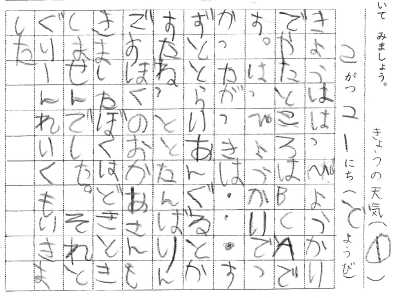 いて みましょう。
きょうの天気（①）
２がつ２１にち（どようび）
きょうははっぴょうかい
でやたところはBくAで
す。はっぴょうかいでつ
かったがっきは・・す
ずととらいあんぐるとか
すたねっととたんばりん
ですぼくのおかあさんも
きましたぼくはときどき
しませんでした。それと
ぐりーんれいくもいきま
した